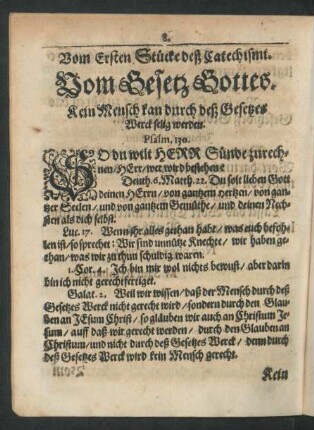 2.
Vom Ersten Stücke deß Catechismi.
Vom Gesetz Gottes.
Kein Mensch kan durch deß Gesetzes
Werck selig werden.
Psalm. 130.
SO du wilt HERR Sünde zurech-
nen/ HErr/ wer wird bestehen?
Deuth. 6. Matth. 22. Du solt lieben Gott
deinen HErrn/ von gantzem hertzen/ von gan-
tzer Seelen/ und von gantzem Gemüthe/ und deinen Nech-
sten als dich selbst.
Luc. 17. Wenn ihr alles gethan habt/ was euch befoh-
len ist/ so sprechet: Wir sind unnütze Knechte/ wir haben ge-
than/ was wir zu thun schuldig waren.
1. Cor. 4. Ich bin mir wol nichts bewust/ aber darin
bin ich nicht gerechtfertiget.
Galat. 2. Weil wir wissen/ daß der Mensch durch deß
Gesetzes Werck nicht gerecht wird/ sondern durch den Glau-
ben an JEsum Christ/ so gläuben wir auch an Christum Je-
sum/ auff daß wir gerecht werden/ durch den Glauben an
Christum/ und nicht durch deß Gesetzes Werck/ denn durch
deß Gesetzes Werck wird kein Mensch gerecht.
Kein